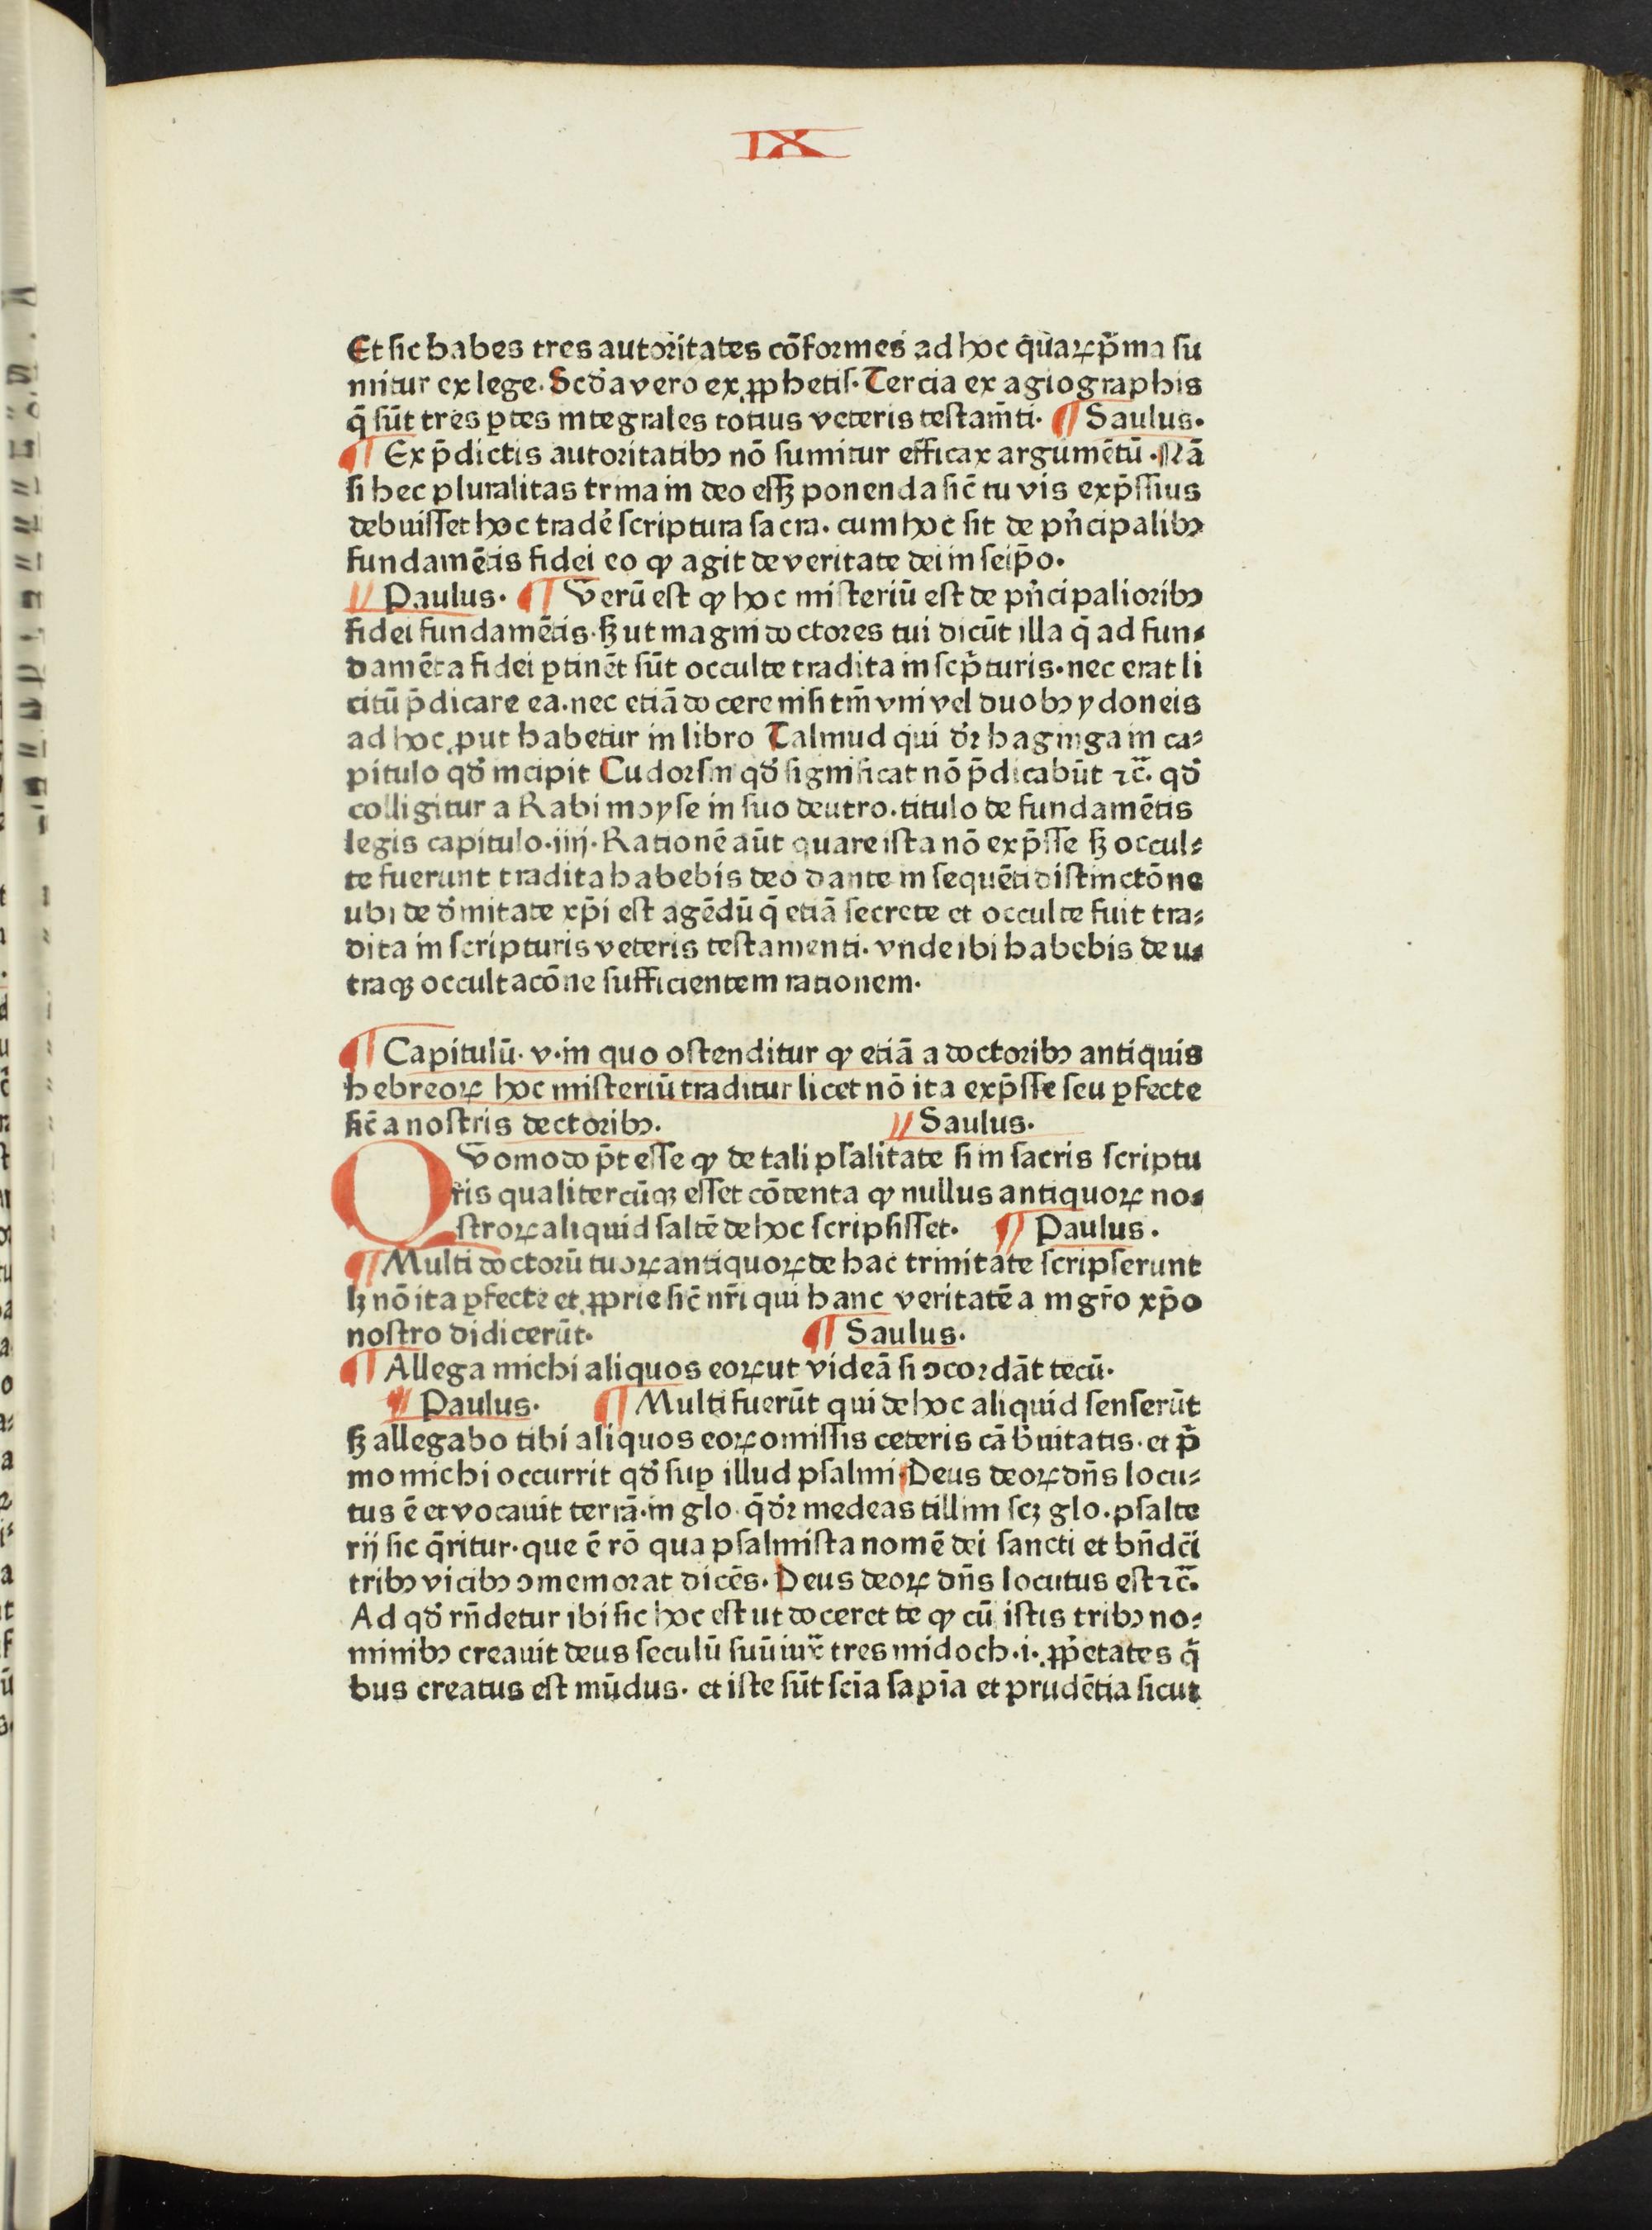 IX
Et sic habes tres autoritates cōformes ad hoc q̄uaꝝ p̄ma su
mitur ex lege. Scd̄a vero ex ꝓphetis. Tercia ex agiographis
q̄ sūt tres ꝑtes integrales totius veteris testam̄ti. ¶ Saulus.
¶ Ex p̄dictis autoritatibꝰ nō sumitur efficax argumētū. Nā
si hec pluralitas trina in deo essꝫ ponenda sic̄ tu vis exp̄ssius
debuisset hoc tradē scriptura sacra. cum hoc sit de pn̄cipalibꝰ
fundamētis fidei eo ꝙ agit de veritate dei in seip̄o.
// Paulus. ¶ Verū est ꝙ hoc misteriū est de pn̄cipalioribꝰ
fidei fundamētis. sꝫ ut magni doctores tui dicūt illa q̄ ad fun⸗
damēta fidei ꝑtinēt sūt occulte tradita in scp̄turis. nec erat li
citū p̄dicare ea. nec etiā docere nisi tm̄ vni vel duobꝰ ydoneis
ad hoc ꝓut habetur in libro Talmud qui dr̄ haginga in ca⸗
pitulo qd̄ incipit Cudorsin qd̄ significat nō p̄dicabūt ⁊c̄. qd̄
colligitur a Rabi moyse in suo deutro. titulo de fundamētis
legis capitulo .iiij. Rationē aūt quare ista nō exp̄sse sꝫ occul⸗
te fuerunt tradita habebis deo dante in sequēti distinctōne
ubi de d̄initate xp̄i est agēdū q̄ etiā secrete et occulte fuit tra⸗
dita in scripturis veteris testamenti. vnde ibi habebis de u⸗
traqꝫ occultacōne sufficientem rationem.
¶ Capitulū. v. in quo ostenditur ꝙ etiā a doctoribꝰ antiquis
hebreoꝝ hoc misteriū traditur licet nō ita exp̄sse seu ꝑfecte
sic̄ a nostris dectoribꝰ. // Saulus.
Qvomodo p̄t esse ꝙ de tali psalitate si in sacris scriptu
ris qualitercūqꝫ esset cōtenta ꝙ nullus antiquoꝝ no⸗
stroꝝ aliquid saltē de hoc scripsisset. ¶ Paulus.
¶ Multi doctorū tuoꝝ antiquoꝝ de hac trinitate scripserunt
lꝫ nō ita ꝑfecte et ꝓprie sic̄ nr̄i qui hanc veritatē a mgr̄o xp̄o
nostro didicerūt. ¶ Saulus.
¶ Allega michi aliquos eoꝝ ut videā si ꝯcordāt tecū.
¶ Paulus. ¶ Multi fuerūt qui de hoc aliquid senserūt
sꝫ allegabo tibi aliquos eoꝝ omissis ceteris cā b̄uitatis. et p̄
mo michi occurrit qd̄ suꝑ illud psalmi. Deus deoꝝ dn̄s locu⸗
tus ē et vocauit terrā. in glo. q̄ dr̄ medeas tillim scꝫ glo. psalte
rij sic q̄ritur. que ē rō qua psalmista nomē dei sancti et bn̄dc̄i
tribꝰ vicibꝰ ꝯmemorat dicēs. Deus deoꝝ dn̄s locutus est ⁊c̄.
Ad qd̄ rn̄detur ibi sic hoc est ut doceret te ꝙ cū istis tribꝰ no⸗
minibꝰ creauit deus seculū suū iux̄ tres midoch .i. ꝓp̄etates q̄
bus creatus est mūdus. et iste sūt sc̄ia sap̄ia et prudētia sicut